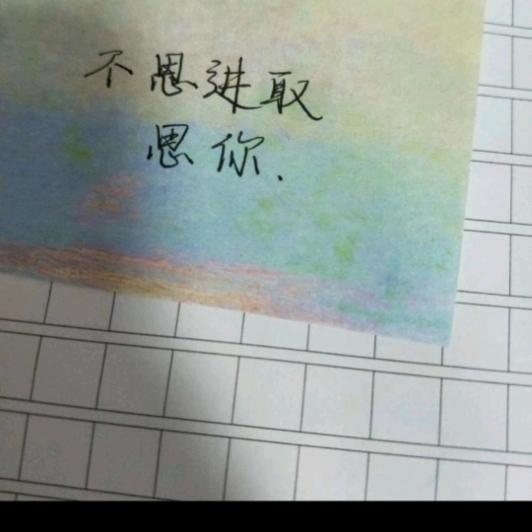 不思进取
思你.